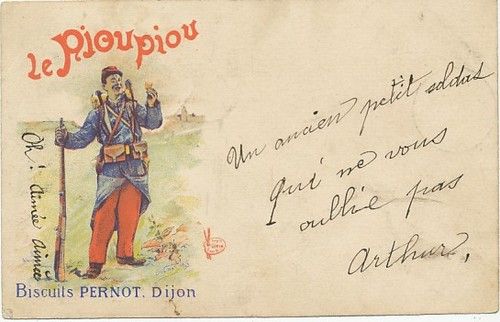 le Pioupiou
Un ancien petit soldat
qui ne vous
oublie pas
Arthur,
Oh! Aimée Aimée
Biscuits PERNOT. Dijon